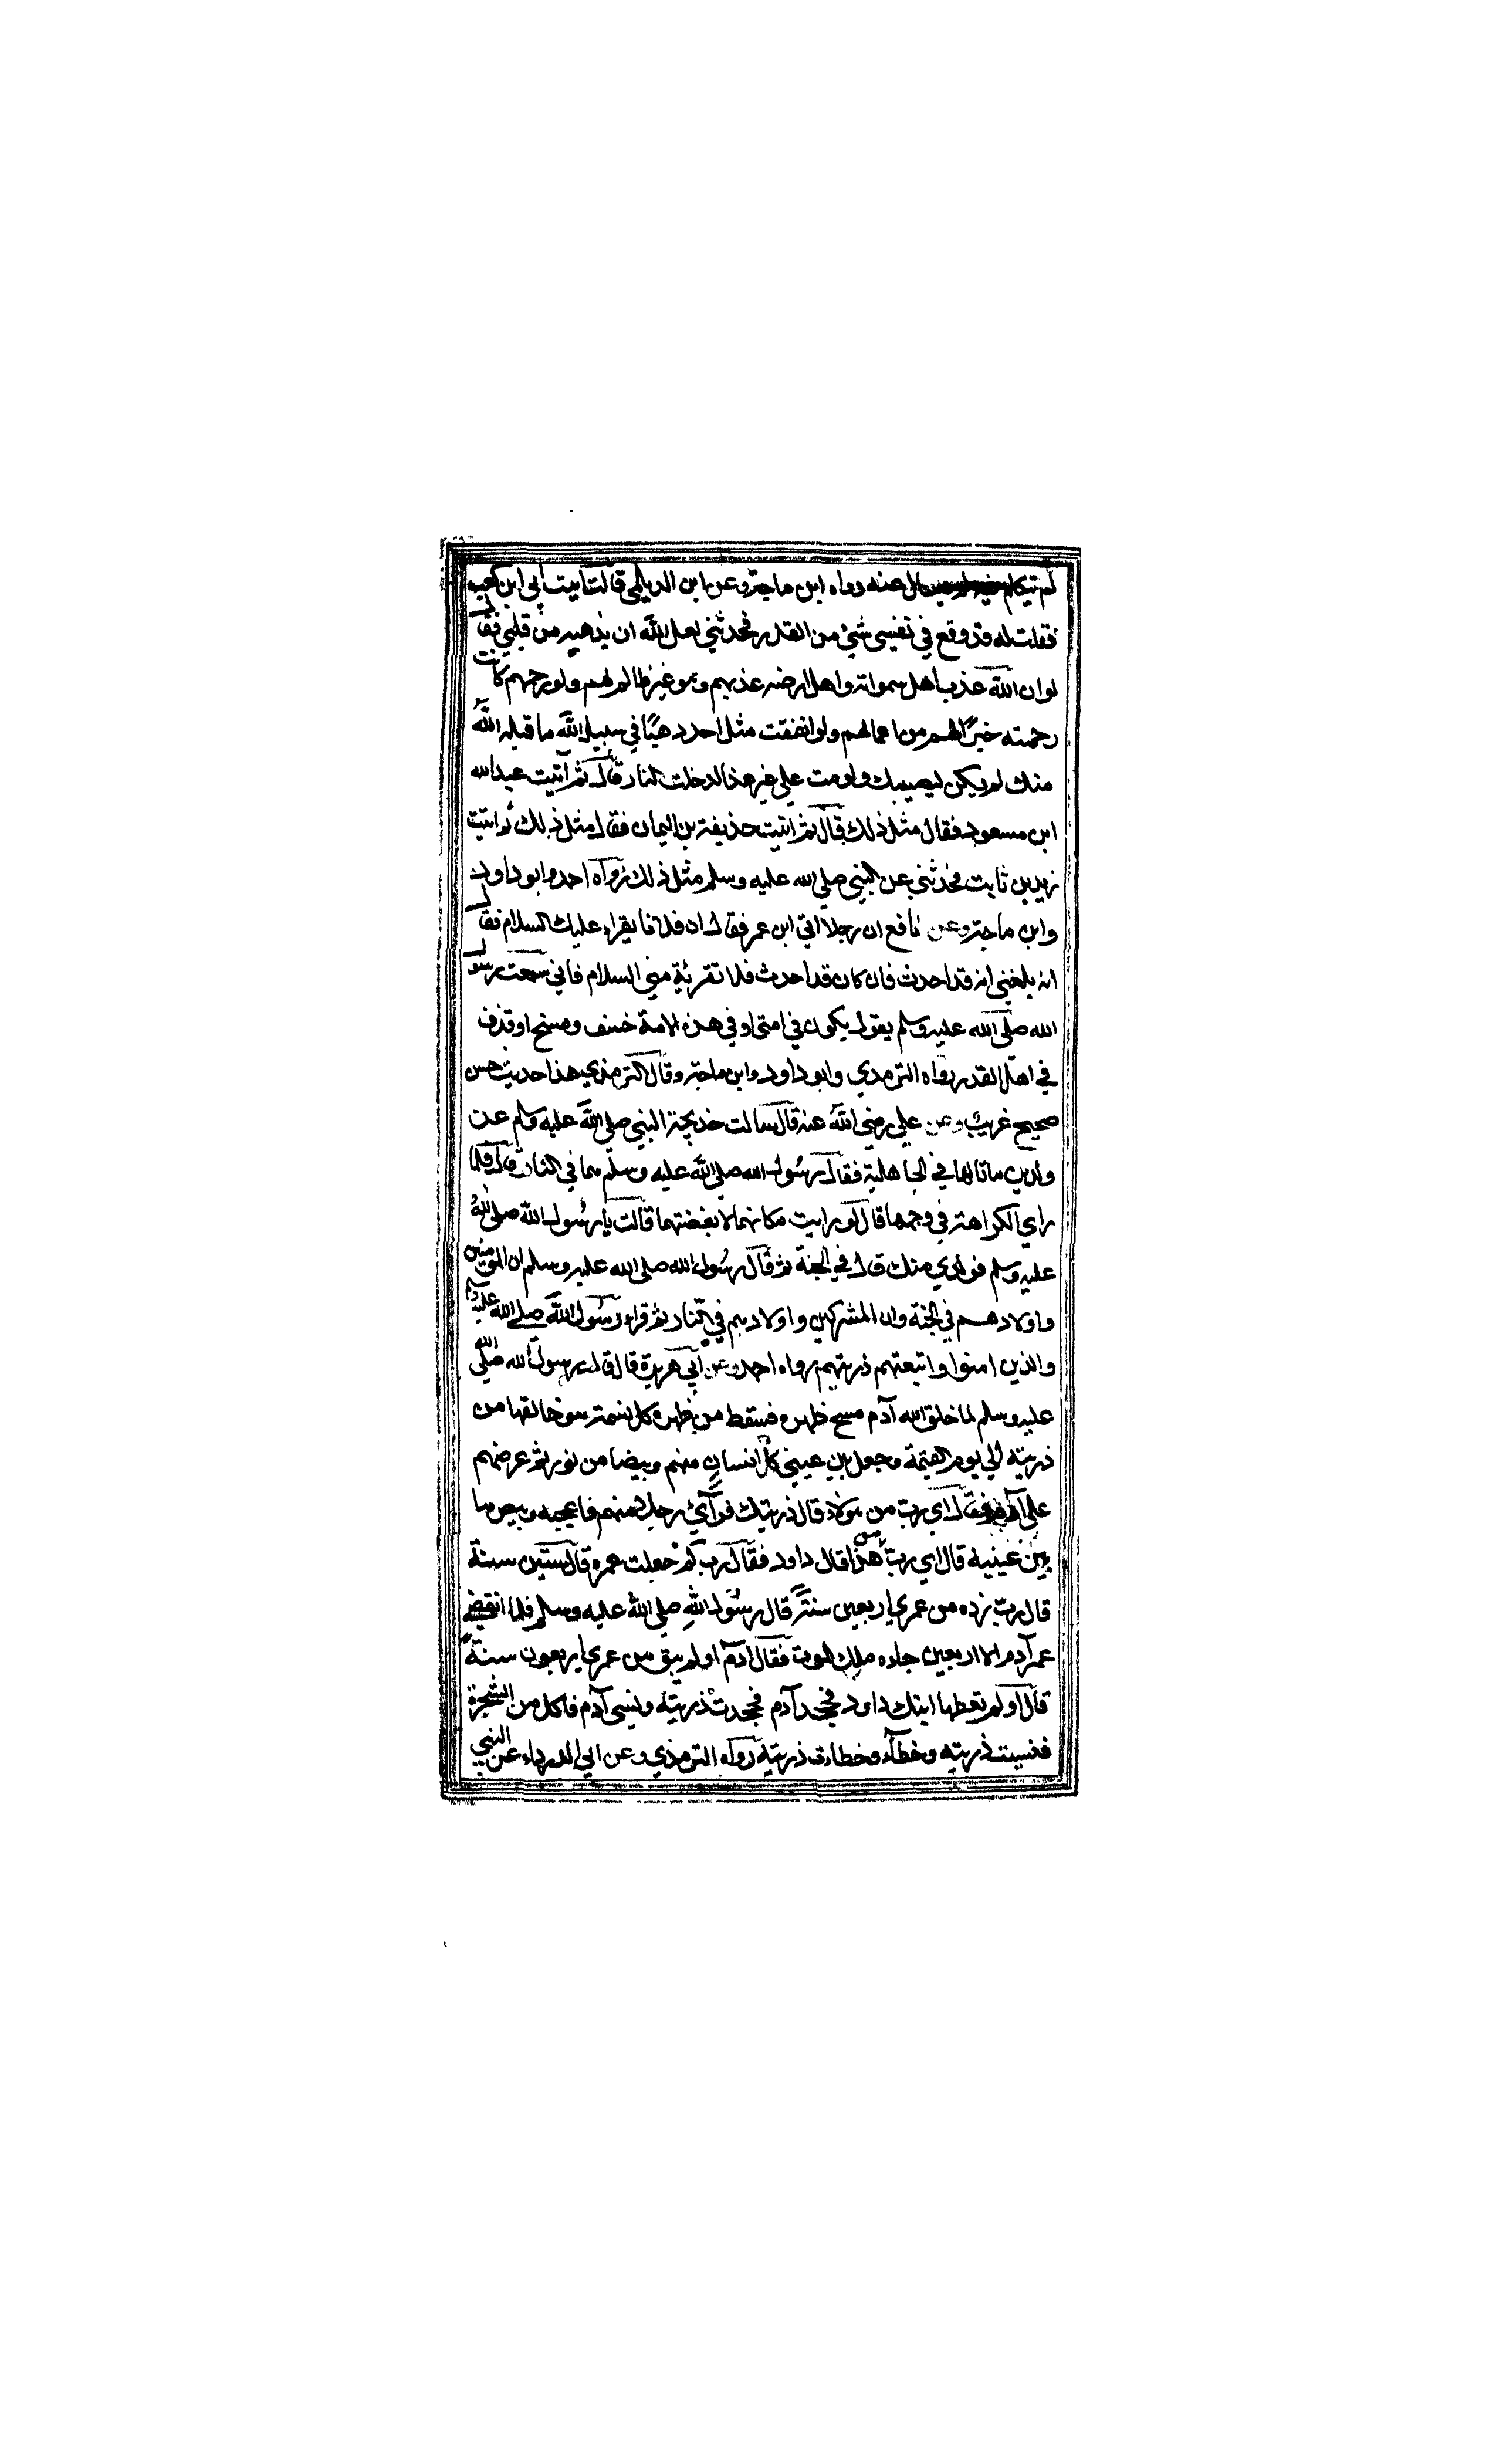 لم يتكلم يسأل عنه رواه ابن ماجة وعن ابن الديلمي قال اتيت ابي ابن كعب
فقلت له قد وقع في نفسي شئ من القدر فحدثني لعل الله ان يذهبه من قلبي فقال
لو ان الله عذب اهل سمواته واهل ارضه عذبهم وهو غير ظالم لهم ولو رحمهم كانت
رحمته خيرًا لهم من اعمالهم ولو انفقت مثل احد ذهبًا في سبيل الله ما قبله الله
منك لم يكن ليصيبك ولو مت علي غير هذا لدخلت النار قال ثم آتيت عبد الله
ابن مسعود فقال مثل ذلك قال ثم اتيت حذيفة بن اليمان فقال مثل ذلك ثم اتيت
زيد بن ثابت فحدثني عن النبي صلي الله عليه وسلم مثل ذلك رواه احمد وابو داود
وابن ماجة وعن نافع ان رجلا اتي ابن عمر فقال ان فلانا يقراء عليك السلام فقال
انه بلغني انه قد احدث فان كان قد احدث فلا تقرئة مني السلام فاني سمعت رسول
الله صلي الله عليه وسلم يقول يكون في امتي او في هذه الامة خسف ومسخ او قذف
في اهل القدر رواه الترمذي وابو داود وابن ماجة وقال الترمذي هذا حديث حسن
صحيح غريب وعن علي رضي الله عنه قال سالت خديجة النبي صلي الله عليه وسلم عن
ولدين ماتا لها في الجاهلية فقال رسول الله صلي الله عليه وسلم هما في النار قال فلما
راي الكراهة في وجهها قال لو رايت مكانهما لابغضتهما قالت يا رسول الله صلي الله
عليه وسلم فولدي منك قال في الجنة ثم قال رسول الله صلي الله عليه وسلم ان المؤمنين
واولادهم في الجنة وان المشركين واولادهم في النار ثم قراء رسول الله صلي الله عليه وسلم
والذين امنوا واتبعتهم ذريتهم رواه احمد وعن ابي هريرة قال قال رسول الله صلي الله
عليه وسلم لما خلق الله آدم مسح ظهره فسقط من ظهره كل نسمة هو خالقها من
ذريته الي يوم القيمة وجعل بين عيني كل انسان منهم وبيضا من نور ثم عرضهم
علي آدم فقال اي رب من هؤلاء قال ذريتك فرآي رجلا منهم فاعجبه وبيص ما
بين عينيه قال اي رب من هذا قال داود فقال رب كم جعلت عمره قال ستين سنة
قال رب زده من عمري اربعين سنة قال رسول الله صلي الله عليه وسلم فلما انقضي
عمر آدم الا اربعين جاءه ملك الموت فقال آدم اولم يبق من عمري اربعون سنة
قال اولم تعطها ابنك داود فجحد آدم فجحدت ذريته ونسي آدم فاكل من الشجرة
فنسيت ذريته وخطاء وخطاءت ذريته رواه الترمذي وعن ابي الدرداء عن النبي